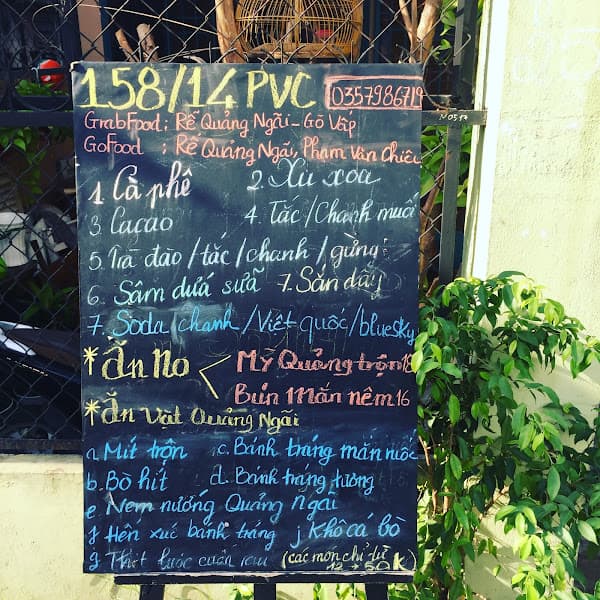 158/14 PVC 0357986719
GrabFood: Rế Quảng Ngãi - Gò Vấp
GoFood : Rế Quảng Ngãi, Phạm Văn Chiêu
1 Cà phê 2. Xu xoa
3. Cacao 4. Tắc/Chanh muối
5. Trà đào/tắc/chanh/gừng
6. Sâm dứa sữa 7. Sắn dây
7. Soda chanh/Việt quốc/bluesky
*Ăn No < Mỹ Quảng trộn 18
Bún Mắn nêm 16
*Ăn Vặt Quảng Ngãi
a. Mít trộn c. Bánh tráng mắn ruốc
b. Bò hít d. Bánh tráng tương
e. Nem nướng Quảng Ngãi
f Hến xúc bánh tráng j Khô cá bò
g. Thịt luộc cuốn ram (các món chỉ từ
12 → 50k)